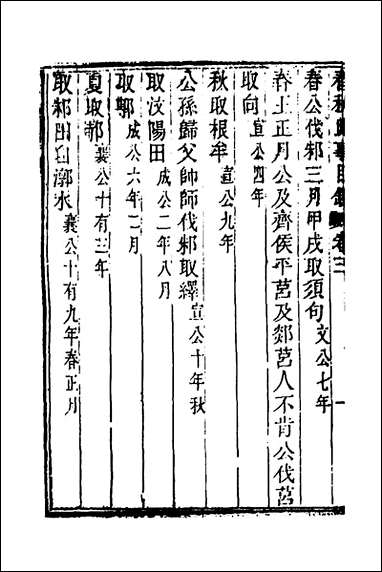 春秋比事目錄卷三 一
春公伐邾三月甲戌取須句文公七年
春王正月公及齊侯平莒及郯莒人不肯公伐莒
取向宣公四年
秋取根牟宣公九年
公孫歸父帥師伐邾取繹宣公十年秋
取汶陽田成公二年八月
取鄟成公六年二月
夏取邿襄公十有三年
取邾田自漷水襄公十有九年春正月